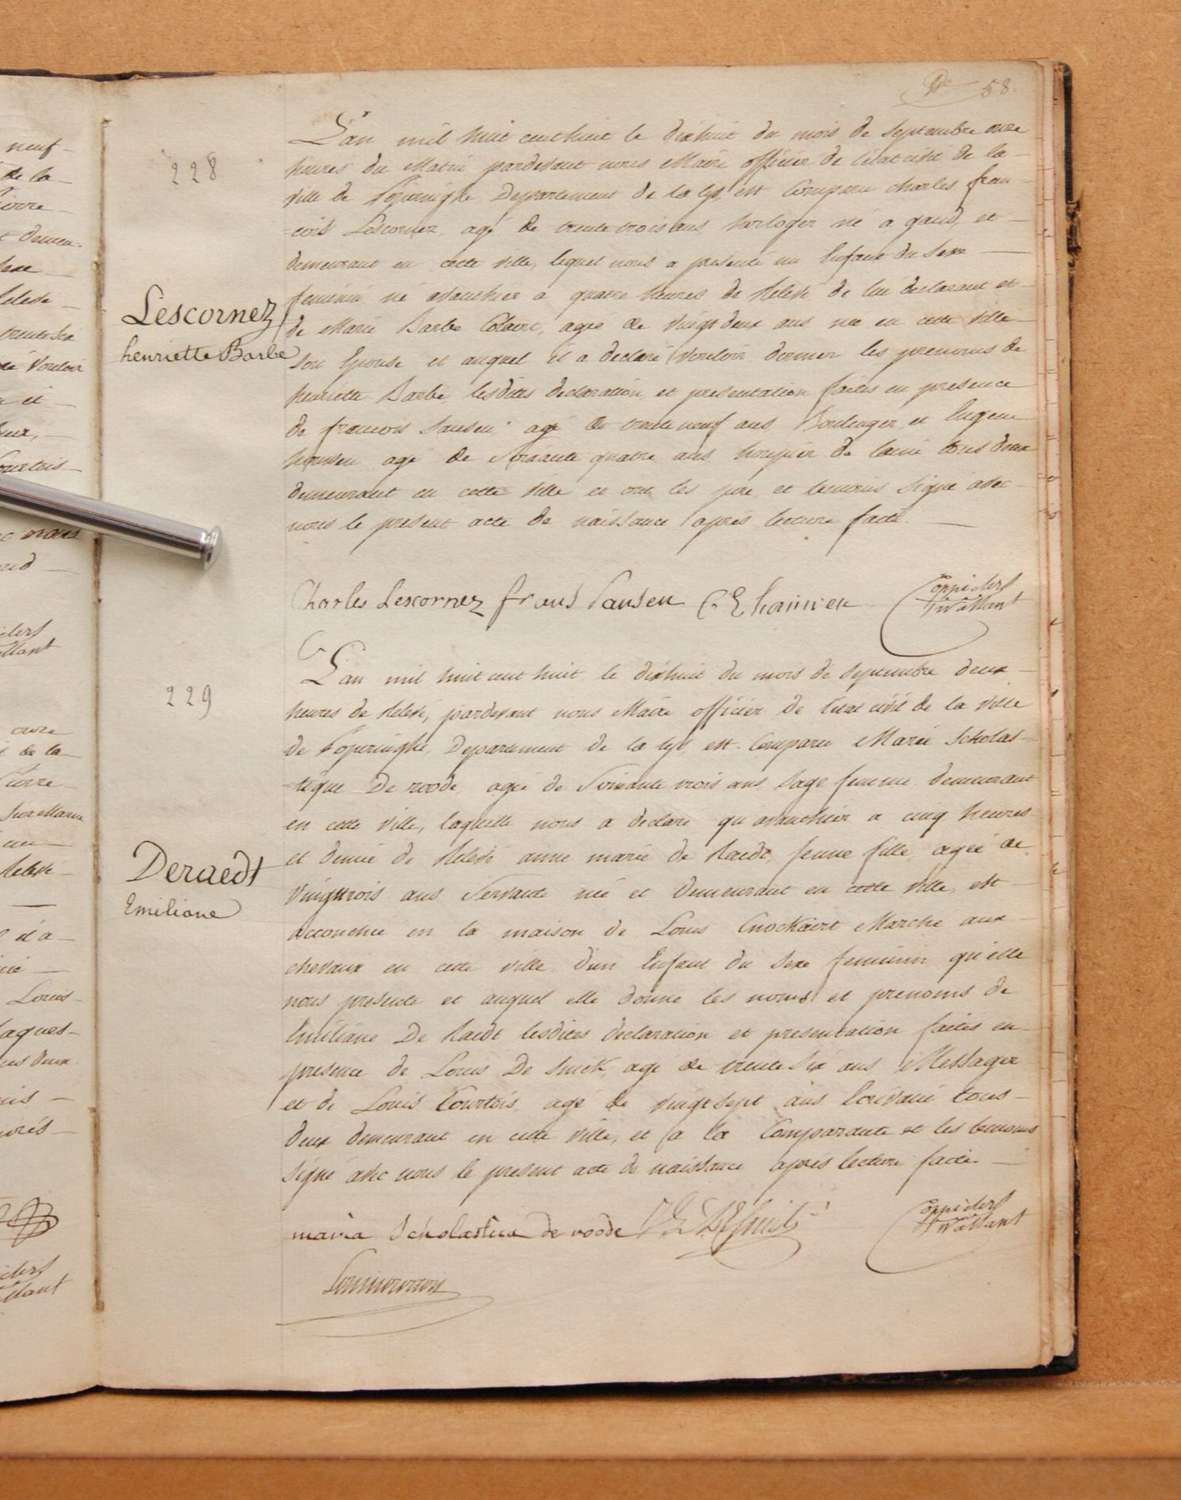 58.
228
L'an mil huit cent huit le dixhuit du mois de septembre onze
heures du Matin pardevant nous Maire officier de l'état civil de la
ville de Poperinghe Departement de la Lys, est Comparu charles fran-
-cois Lescornez agé de trente trois ans horloger né a gand, et
demeurant en cette ville, lequel nous a presenté un Enfant du Sexe
feminin né avanthier a quatre heures de Relevé de lui declarant et
Lescornez
henriette Barbe
de Marie Barbe Colaert, agée de vingt deux ans née en cette ville
Son Epouse et auquel il a declaré vouloir donner les prenoms de
henriette Barbe lesdites declaration et presentation faites en presence
de francois Jansen agé de trente neuf ans Boulanger et Eugene
agé de Soixante quatre ans de laine tous deux
demeurant en cette ville et ont les pere et temoins Signé avec
nous le present acte de naissance après lecture faite.
Charles Lescornez frans Jansen
229
L'an mil huit cent huit le dixhuit du mois de septembre deux
heures de Relevé, pardevant nous Maire officier de l'état civil de la ville
de Poperinghe, Departement de la Lys, est Comparu Marie Scholas-
-tique De roode, agée de Soixante trois ans Sage femme demeurant
en cette ville, laquelle nous a declaré qu'avanthier a cinq heures
Deraedt
Emiliane
et demie de Relevé anne marie de Raedt, jeune fille agée de
vingttrois ans Servante née et demeurant en cette ville est
accouchée en la maison de Louis Cnockaert Marché aux
chevaux en cette ville d'un Enfant du Sexe feminin qu'elle
nous presente et auquel elle donne les noms et prenoms de
Emiliane De Raedt lesdites declaration et presentation faites en
presence de Louis De Smidt agé de trente Six ans Messager
et de Louis Courtois agé de vingt sept ans Ecrivain tous
deux demeurant en cette ville, et a la Comparante et les temoins
Signé avec nous le present acte de naissance après lecture faite
maria Scholastica de roode